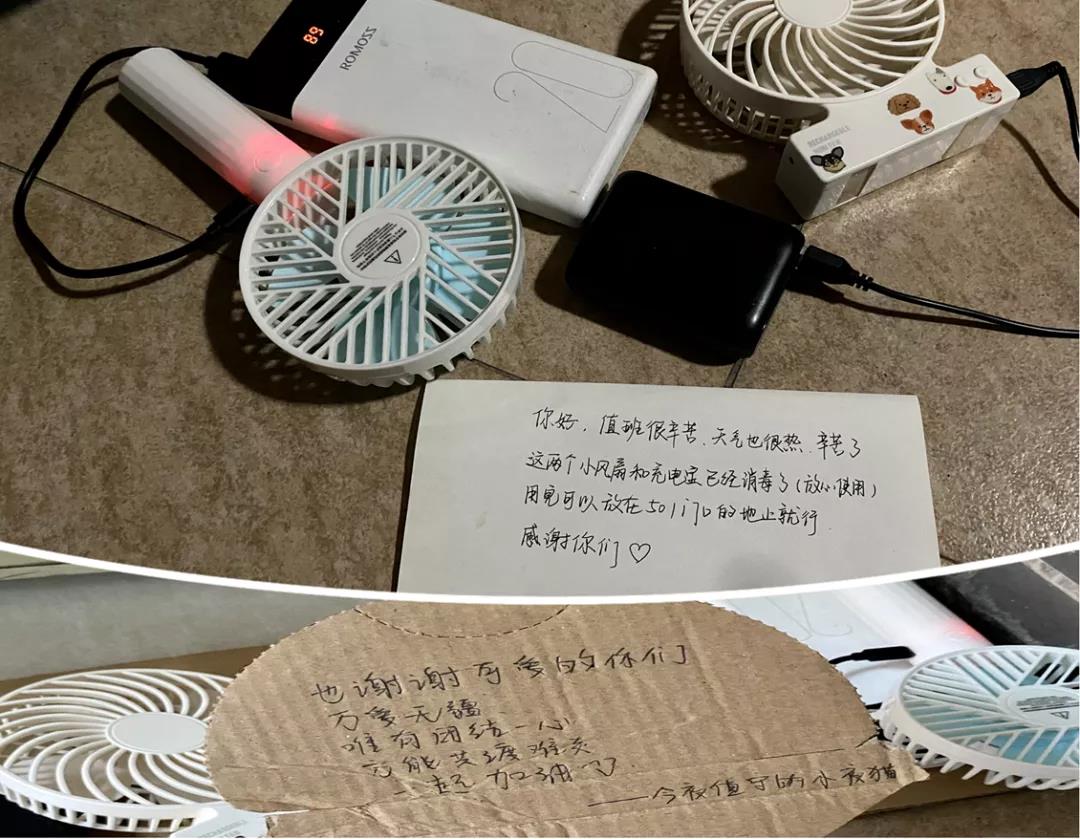 89
ROMOSS
20
RECHARGEABLE
你好，值班很辛苦、天气也很热，辛苦了
这两个小风扇和充电宝已经消毒了（放心使用）
用完可以放在501门口的地上就行
感谢你们♡
也谢谢可爱的你们
万爱无疆
唯有团结一心
方能共渡难关
一起加油吧
——今夜值守的小夜猫